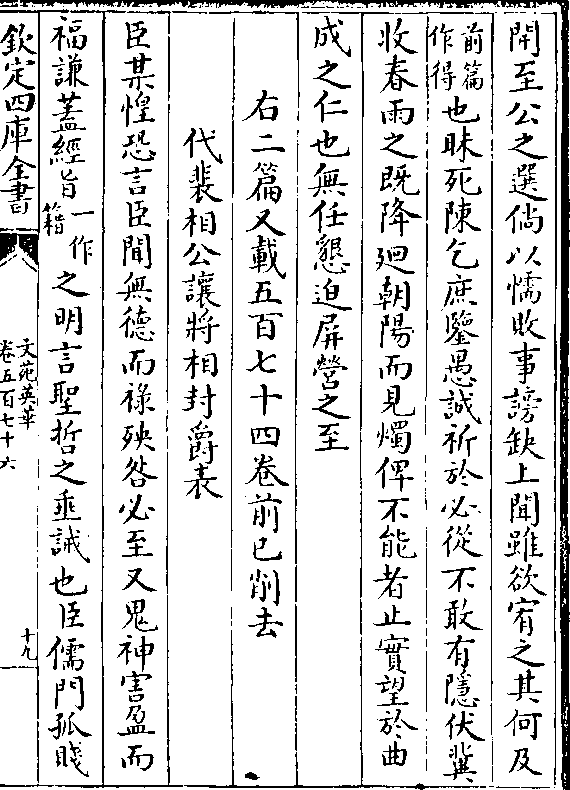 開至公之選倘以懦敗事謗缺上聞雖欲宥之其何及
前篇作得也昧死陳乞庶鑒愚誠祈於必從不敢有隱伏冀
收春雨之既降廻朝陽而見燭俾不能者止實望於曲
成之仁也無任懇迫屏營之至
右二篇又載五百七十四卷前已削去
代裴相公讓將相封爵表
臣某惶恐言臣聞無德而祿殃咎必至又鬼神害盈而
福謙蓋經旨一作籍之明言聖哲之垂誡也臣儒門孤賤
欽定四庫全書
文苑英華
卷五百七十六
十九